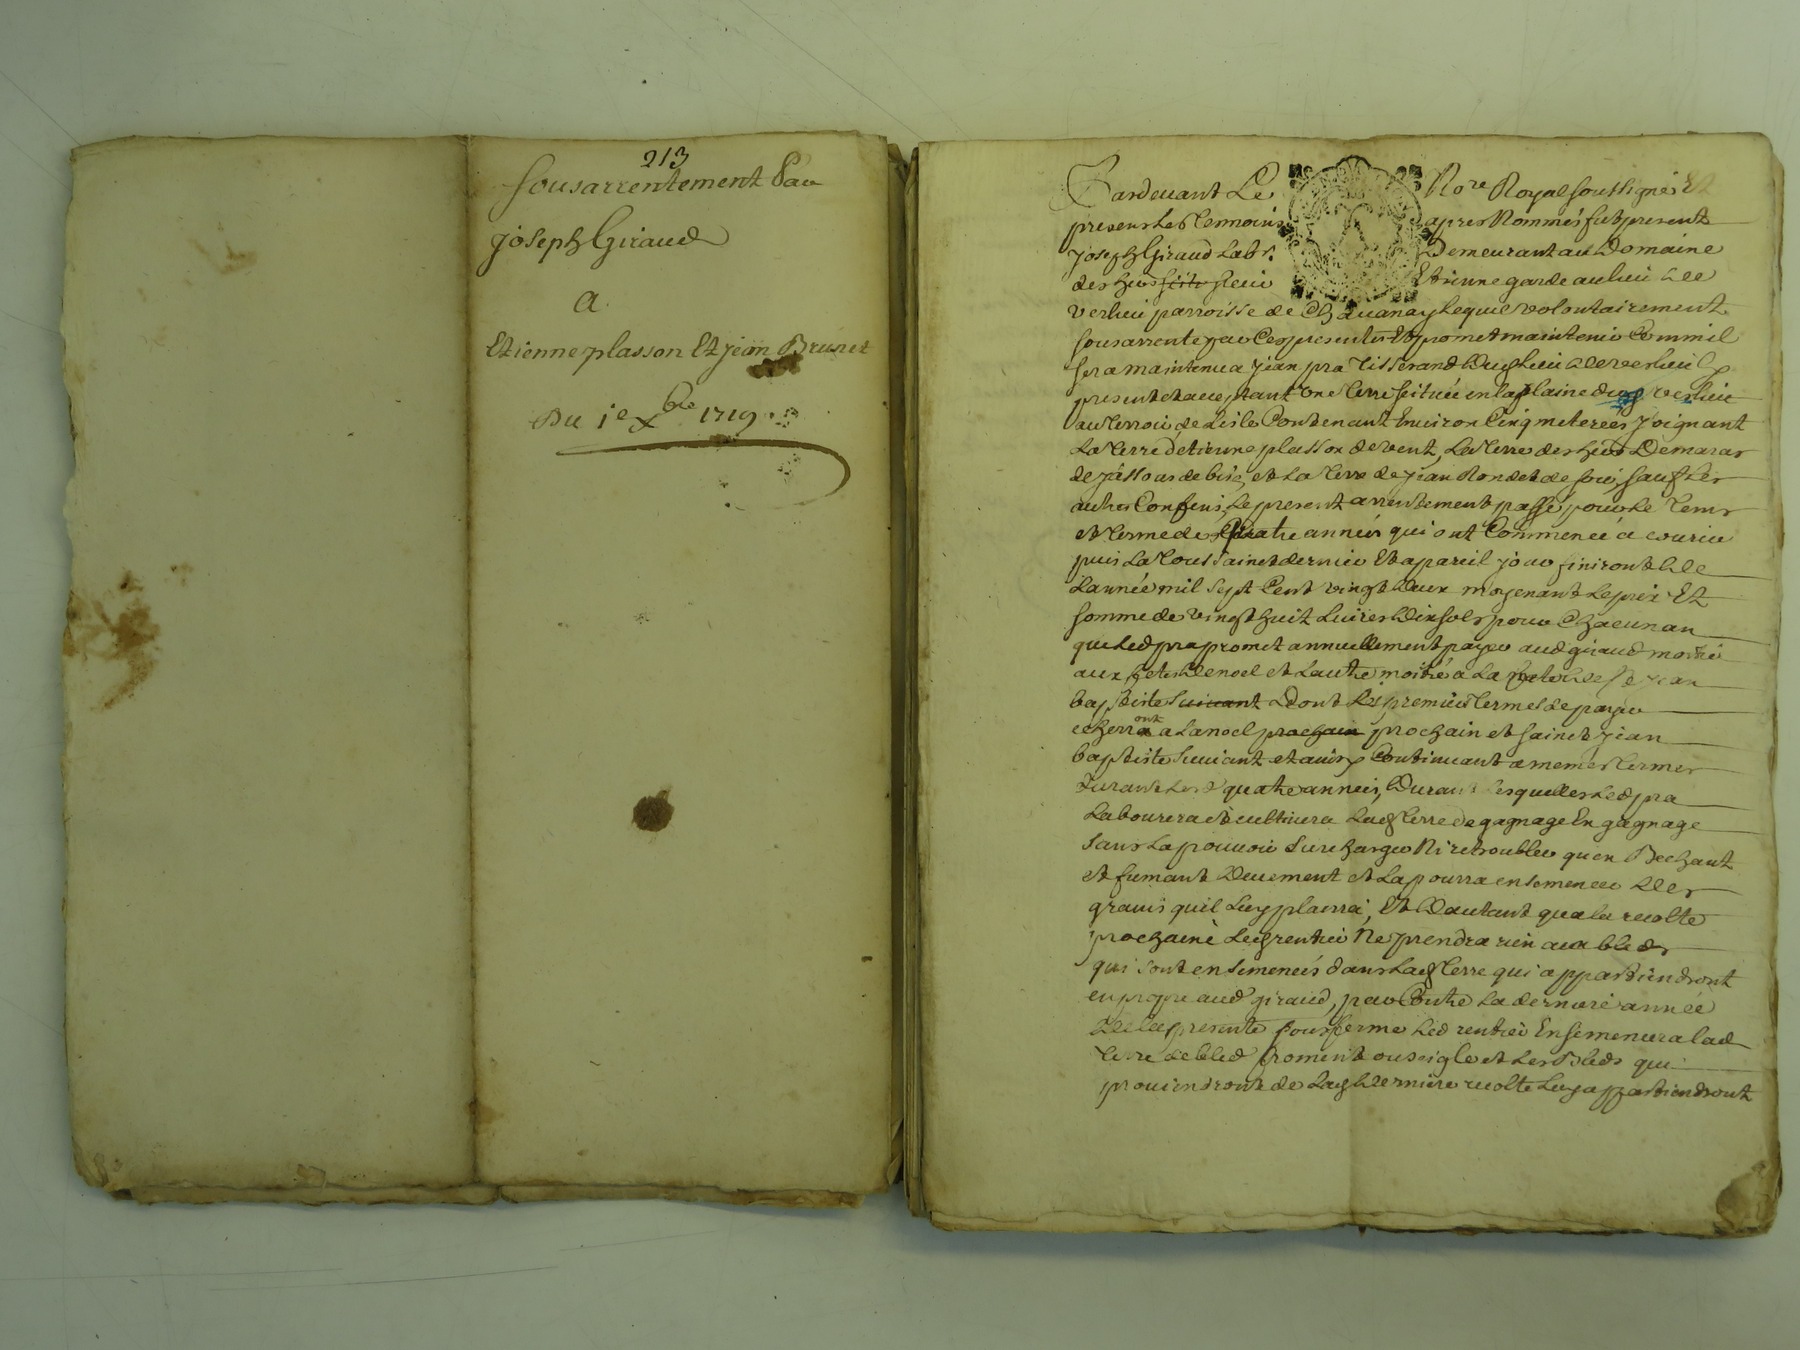 213
Sousarrentement Par
joseph Giraud
A
Etienne plasson Et jean Brunet
Du 1e xbre 1719
Pardevant Le Nore Royal soussigné Et
presens les temoins apres Nommés fut present
joseph Giraud Labr. Demeurant au Domaine
des hers sieur Etienne garde au lieu de
verlieu parroisse de Chavanay Lequel volontairement
sousarrente par Ces presentes Et promet maintenir Comme il
sera maintenu a jean pra tisserand dud lieu de verlieu
present et aceptant une terre scituée en la plaine dud verlieu
au terroir de Lisle Contenant Environ Cinq meterées joignant
La terre d'etienne plasson de vent, La terre des hers
de bise, et La terre de jean Rondet de soir, sauf Les
autres Confins, Le present arrentement passé pour Le tems
et terme de quatre années qui ont Commencé a courir
puis La toussaint dernier Et a pareil jour finiront de
L'année mil sept Cent vingt deux moyenant Le prix Et
somme de vingt huit Livres dix sols pour Chacun an
que Led pra promet annuellement payer aud giraud moitié
aux fetes de noel et L'autre moitié a La fete de st jean
baptiste suivant dont Les premiers termes de payer
echerront a La noel prochain prochain et saint jean
baptiste suivant et ainsy Continuant a memes termes
Durant Lesd quatre années, Durant Lesquelles Led pra
Labourera et cultivera Lad terre de gagnage En gagnage
sans La pouvoir surcharger Ni retroubler qu'en Bechant
et fumant Deuement et La pourra ensemencer des
grains qu'il Luy plairra, Et D'autant qu'a la recolte
prochaine Led rentier Ne prendra rien aux bleds
qui sont ensemencés dans Lad terre qui appartiendront
en propre aud giraud, par Contre La derniere année
De la presente sousferme Led rentier Ensemencera lad
terre de bled froment ou seigle et Les Bleds qui
proviendront de Lad derniere recolte Luy appartiendront